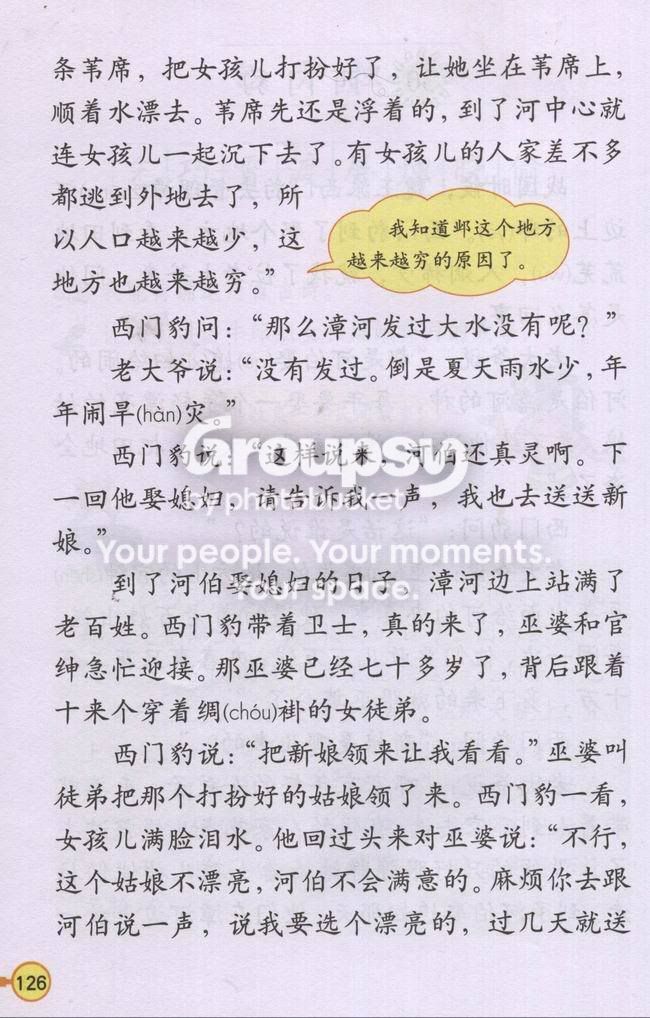 条苇席，把女孩儿打扮好了，让她坐在苇席上，
顺着水漂去。苇席先还是浮着的，到了河中心就
连女孩儿一起沉下去了。有女孩儿的人家差不多
都逃到外地去了，所
以人口越来越少，这
地方也越来越穷。”
我知道邺这个地方
越来越穷的原因了。
西门豹问：“那么漳河发过大水没有呢？”
老大爷说：“没有发过。倒是夏天雨水少，年
年闹旱(hàn)灾。”
西门豹说：“这样说来，河伯还真灵啊。下
一回他娶媳妇，请告诉我一声，我也去送送新
娘。”
到了河伯娶媳妇的日子，漳河边上站满了
老百姓。西门豹带着卫士，真的来了，巫婆和官
绅急忙迎接。那巫婆已经七十多岁了，背后跟着
十来个穿着绸(chóu)褂的女徒弟。
西门豹说：“把新娘领来让我看看。”巫婆叫
徒弟把那个打扮好的姑娘领了来。西门豹一看，
女孩儿满脸泪水。他回过头来对巫婆说：“不行，
这个姑娘不漂亮，河伯不会满意的。麻烦你去跟
河伯说一声，说我要选个漂亮的，过几天就送
126
Groupsy
by photobucket
Your people. Your moments.
Your space.